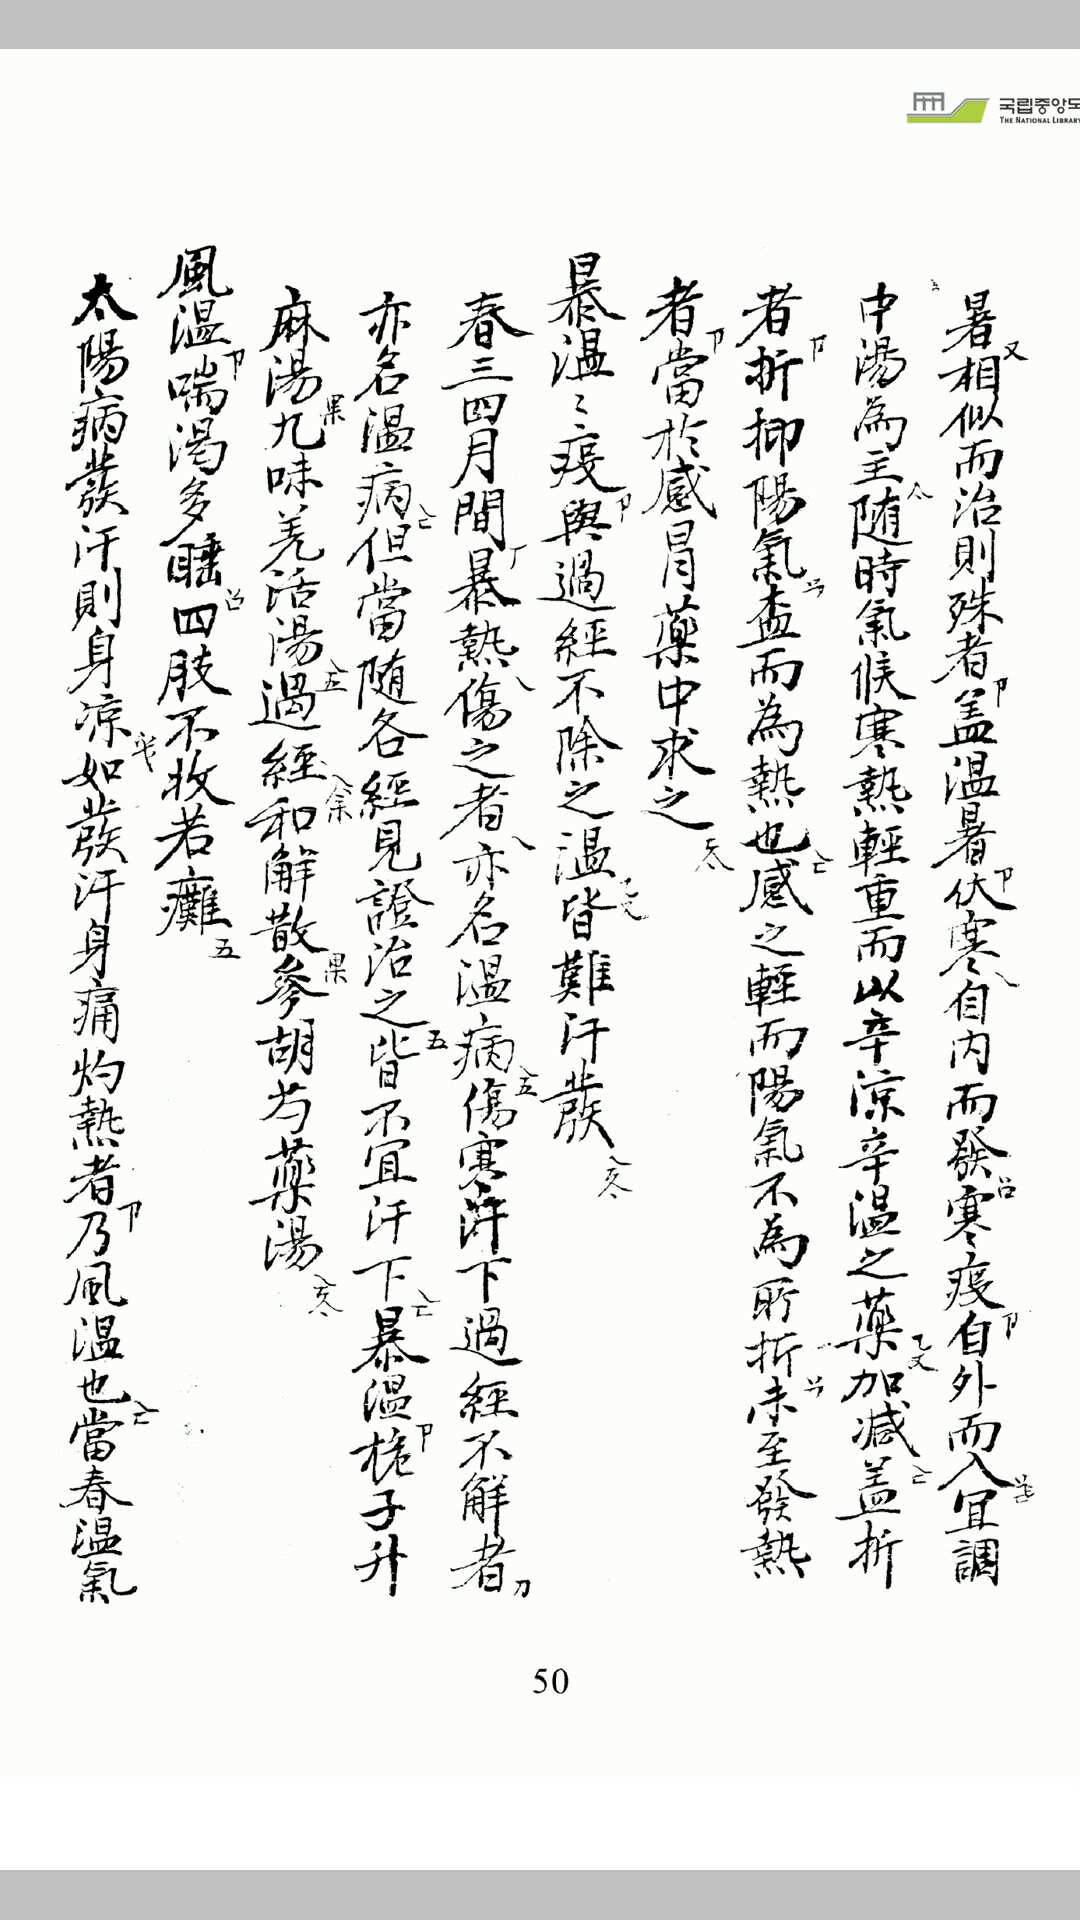 국립중앙도
THE NATIONAL LIBRARY
暑相似而治則殊者盖温暑伏寒自内而發寒疫自外而入宜調
中湯為主随時氣候寒熱輕重而以辛涼辛温之藥加减盖折
者折抑陽氣盍而為熱也感之輕而陽氣不為所折未至發熱
者當於感冒藥中求之
暴温〻疫與過經不除之温皆難汗發
春三四月間暴熱傷之者亦名温病傷寒汗下過經不解者
亦名温病但當随各經見證治之皆不宜汗下暴温梔子升
麻湯九味羌活湯過經和解散參胡芍藥湯
風温喘渴多睡四肢不收若癱
太陽病發汗則身涼如發汗身痛灼熱者乃風温也當春温氣
50